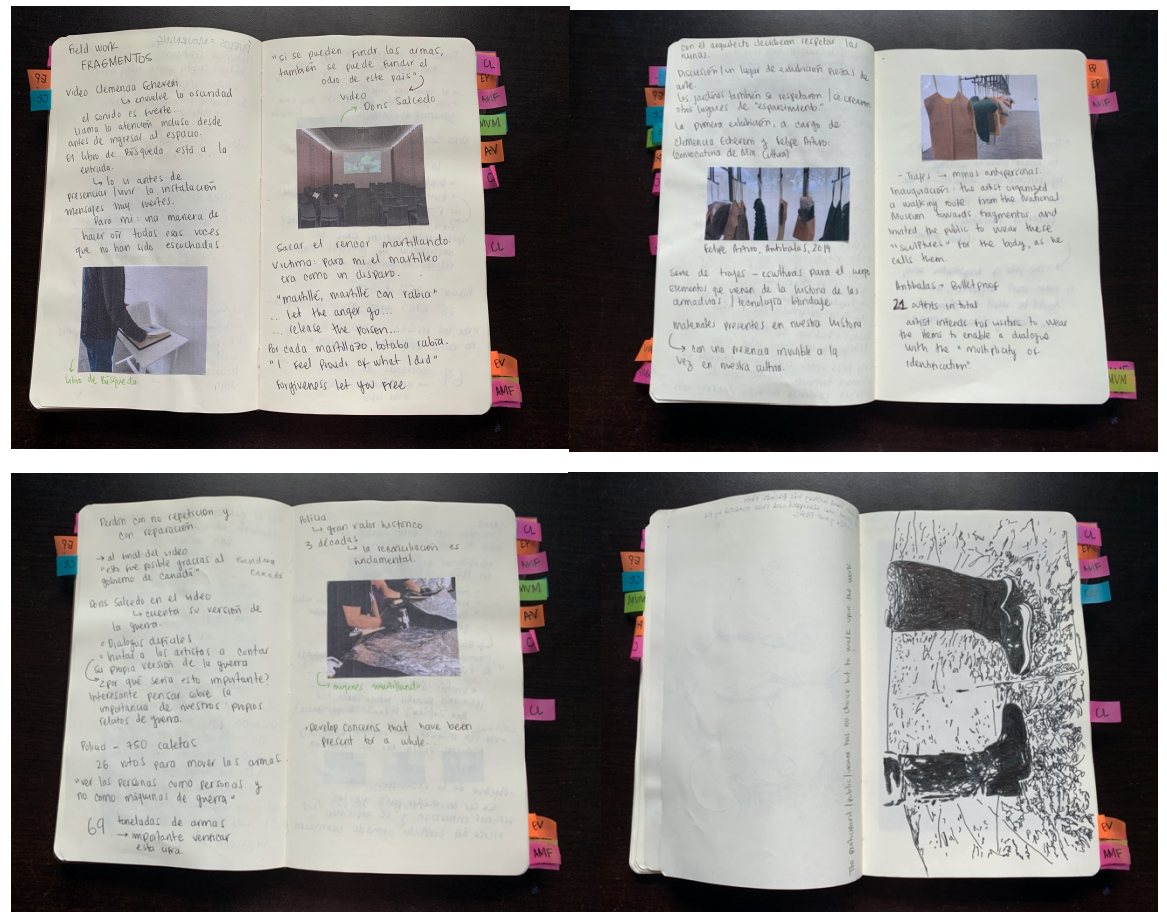 Field work
FRAGMENTOS
video Clemencia Echeverri
↳ envuelve la oscuridad
el sonido es fuerte...
llama la atención incluso desde
antes de ingresar al espacio.
El libro de Búsqueda está a la
entrada.
↳ lo vi antes de
presenciar/vivir la instalación
mensajes muy fuertes.
Para mí: una manera de
hacer oír todas esas voces
que no han sido escuchadas.
Libro de Búsqueda
"Si se pueden fundir las armas,
también se puede fundir el
odio de este país"
video
Doris Salcedo
Sacar el rencor martillando
víctima: para mí el martilleo
era como un disparo.
"martillé, martillé con rabia"
... let the anger go...
... release the poison...
Por cada martillazo, botaba rabia.
"I feel proud of what I did"
Forgiveness let you free
CL
EP
AMF
MVM
AV
C
CL
EV
AMF
con el arquitecto decidieron respetar las
ruinas.
Discusión/un lugar de exhibición piezas de
arte.
los jardines también se respetaron/se crearon
otros lugares de "esparcimiento."
La primera exhibición, a cargo de
Clemencia Echeverri y Felipe Arturo:
(convocatoria de Min Cultura)
Felipe Arturo, Antibalas, 2019
serie de trajes - esculturas para el cuerpo
elementos que vienen de la historia de las
armaduras / tecnología blindaje
materiales presentes en nuestra historia
↳ con una presencia invisible a la
vez en nuestra cultura.
- Trajes → minas antipersonas.
Inauguración: the artist organized
a walking route from the National
Museum towards fragmentos and
invited the public to wear these
"sculptures" for the body, as he
calls them.
Antibalas → Bulletproof
21 outfits in total
artist intends for visitors to wear
the items to enable a dialogue
with the "multiplicity of
identification".
EP
AMF
MVM
Perdón con no repetición y
con reparación.
→ al final del video
"esto fue posible gracias al
gobierno de Canadá"
Canadá
Doris Salcedo en el video
↳ cuenta su versión de
la guerra.
• Dialogos difíciles
• Invitar a los artistas a contar
su propia versión de la guerra
¿por qué sería esto importante?
Interesante pensar sobre la
importancia de nuestros propios
relatos de guerra.
Policía - 750 caletas
26 rutas para mover las armas.
"ver las personas como personas y
no como máquinas de guerra"
69 toneladas de armas
→ importante verificar
esta cifra.
Policía
↳ gran valor histórico
3 décadas
↳ la reconciliación es
fundamental.
↳ mujeres martillando
• Develop concerns that have been
present for a while.
CL
EP
AMF
MVM
AV
C
CL
EV
AMF
has no choice but to walk upon the work
CL
EP
AMF
CL
EV
AMF